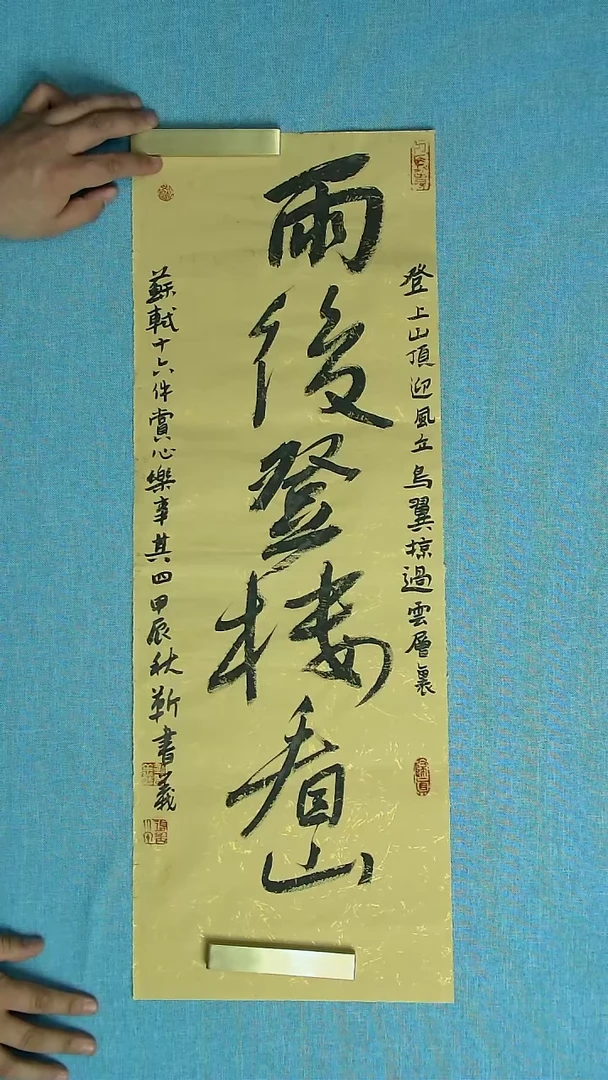 登上山頂迎風立鳥翼掠過雲層裏
雨後登樓看山
蘇軾十六件賞心樂事其四甲辰秋靳書義